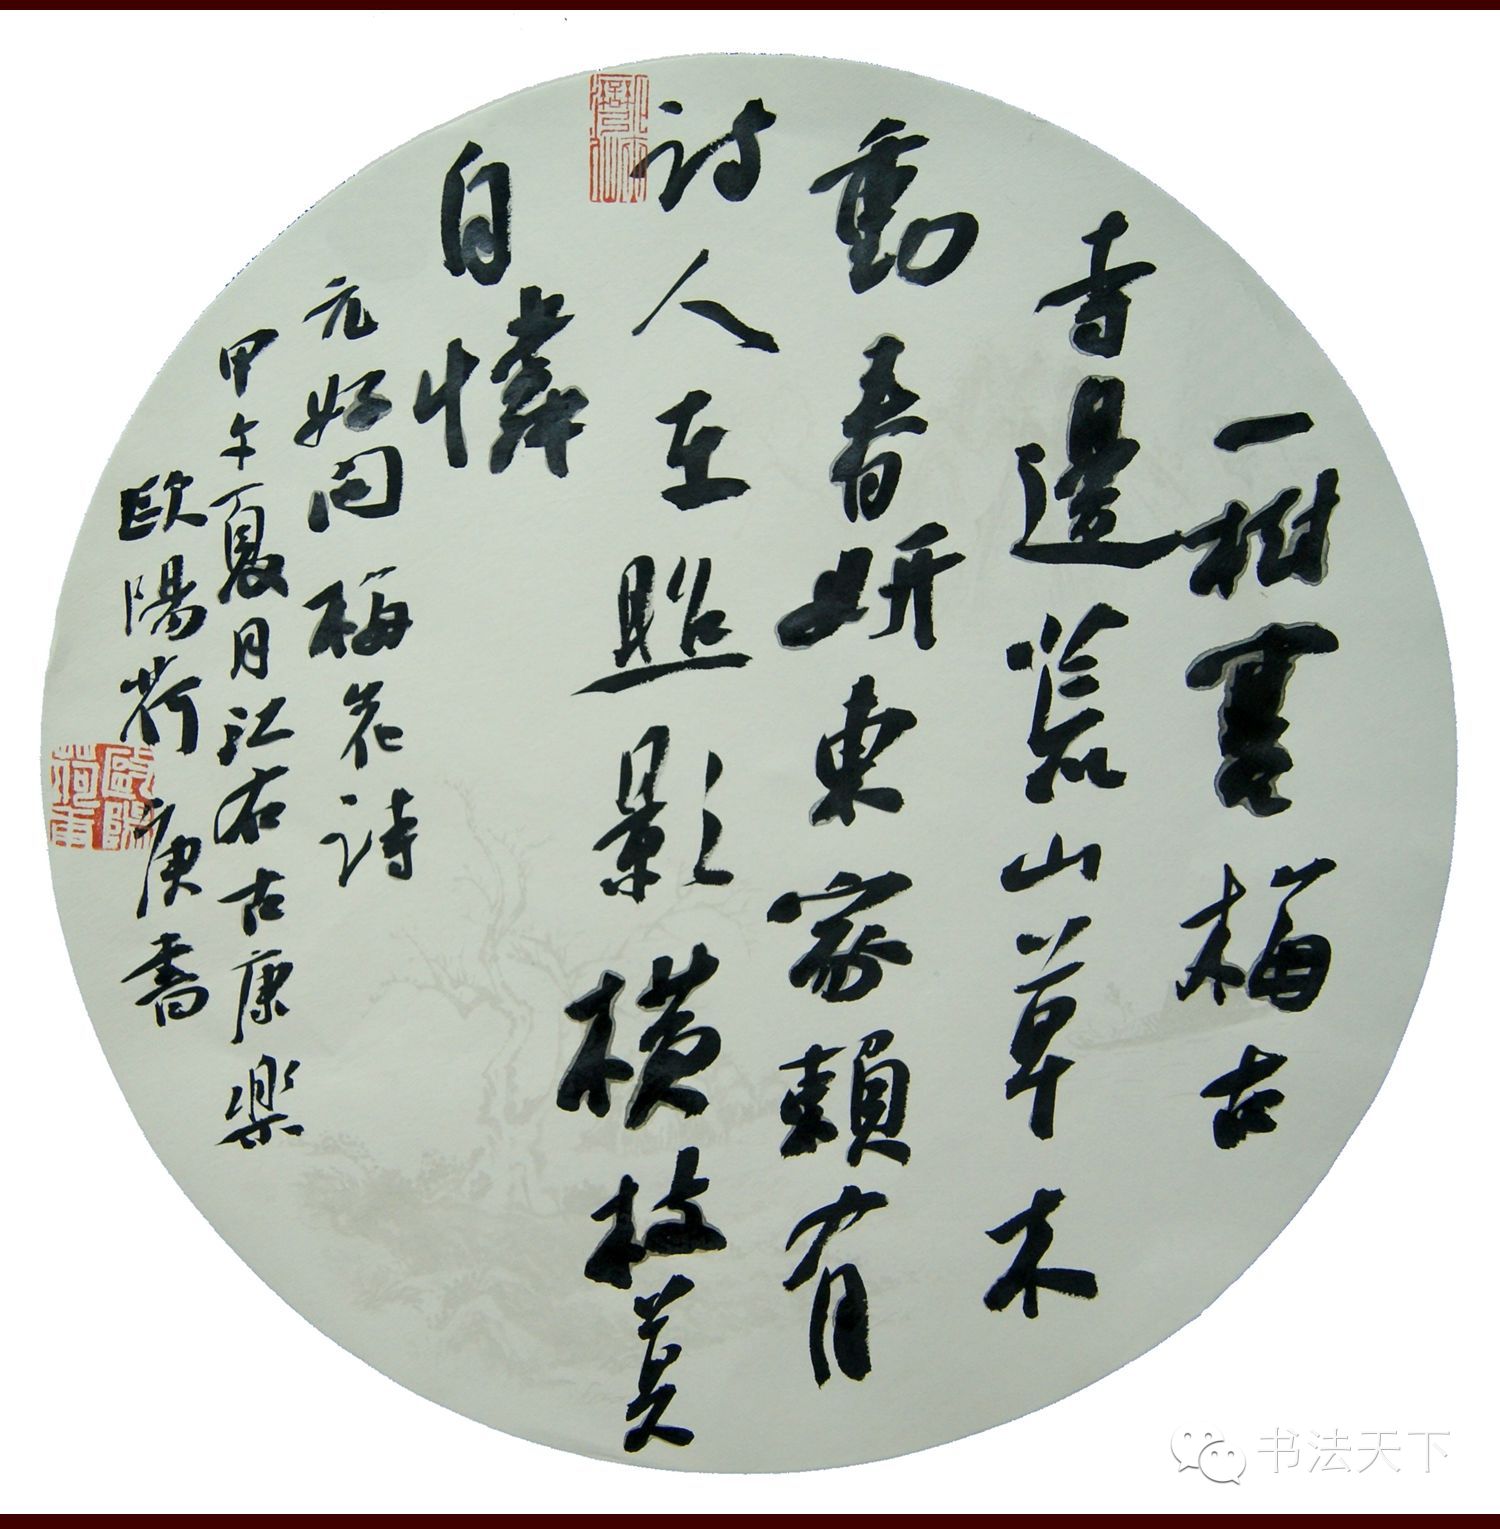 一樹寒梅古
寺邊荒山草木
動春妍東家賴有
詩人在照影橫枝莫
自憐
元好问梅花詩
甲午夏月江右古康樂
欧陽荷庚書
歐陽荷庚
书法天下